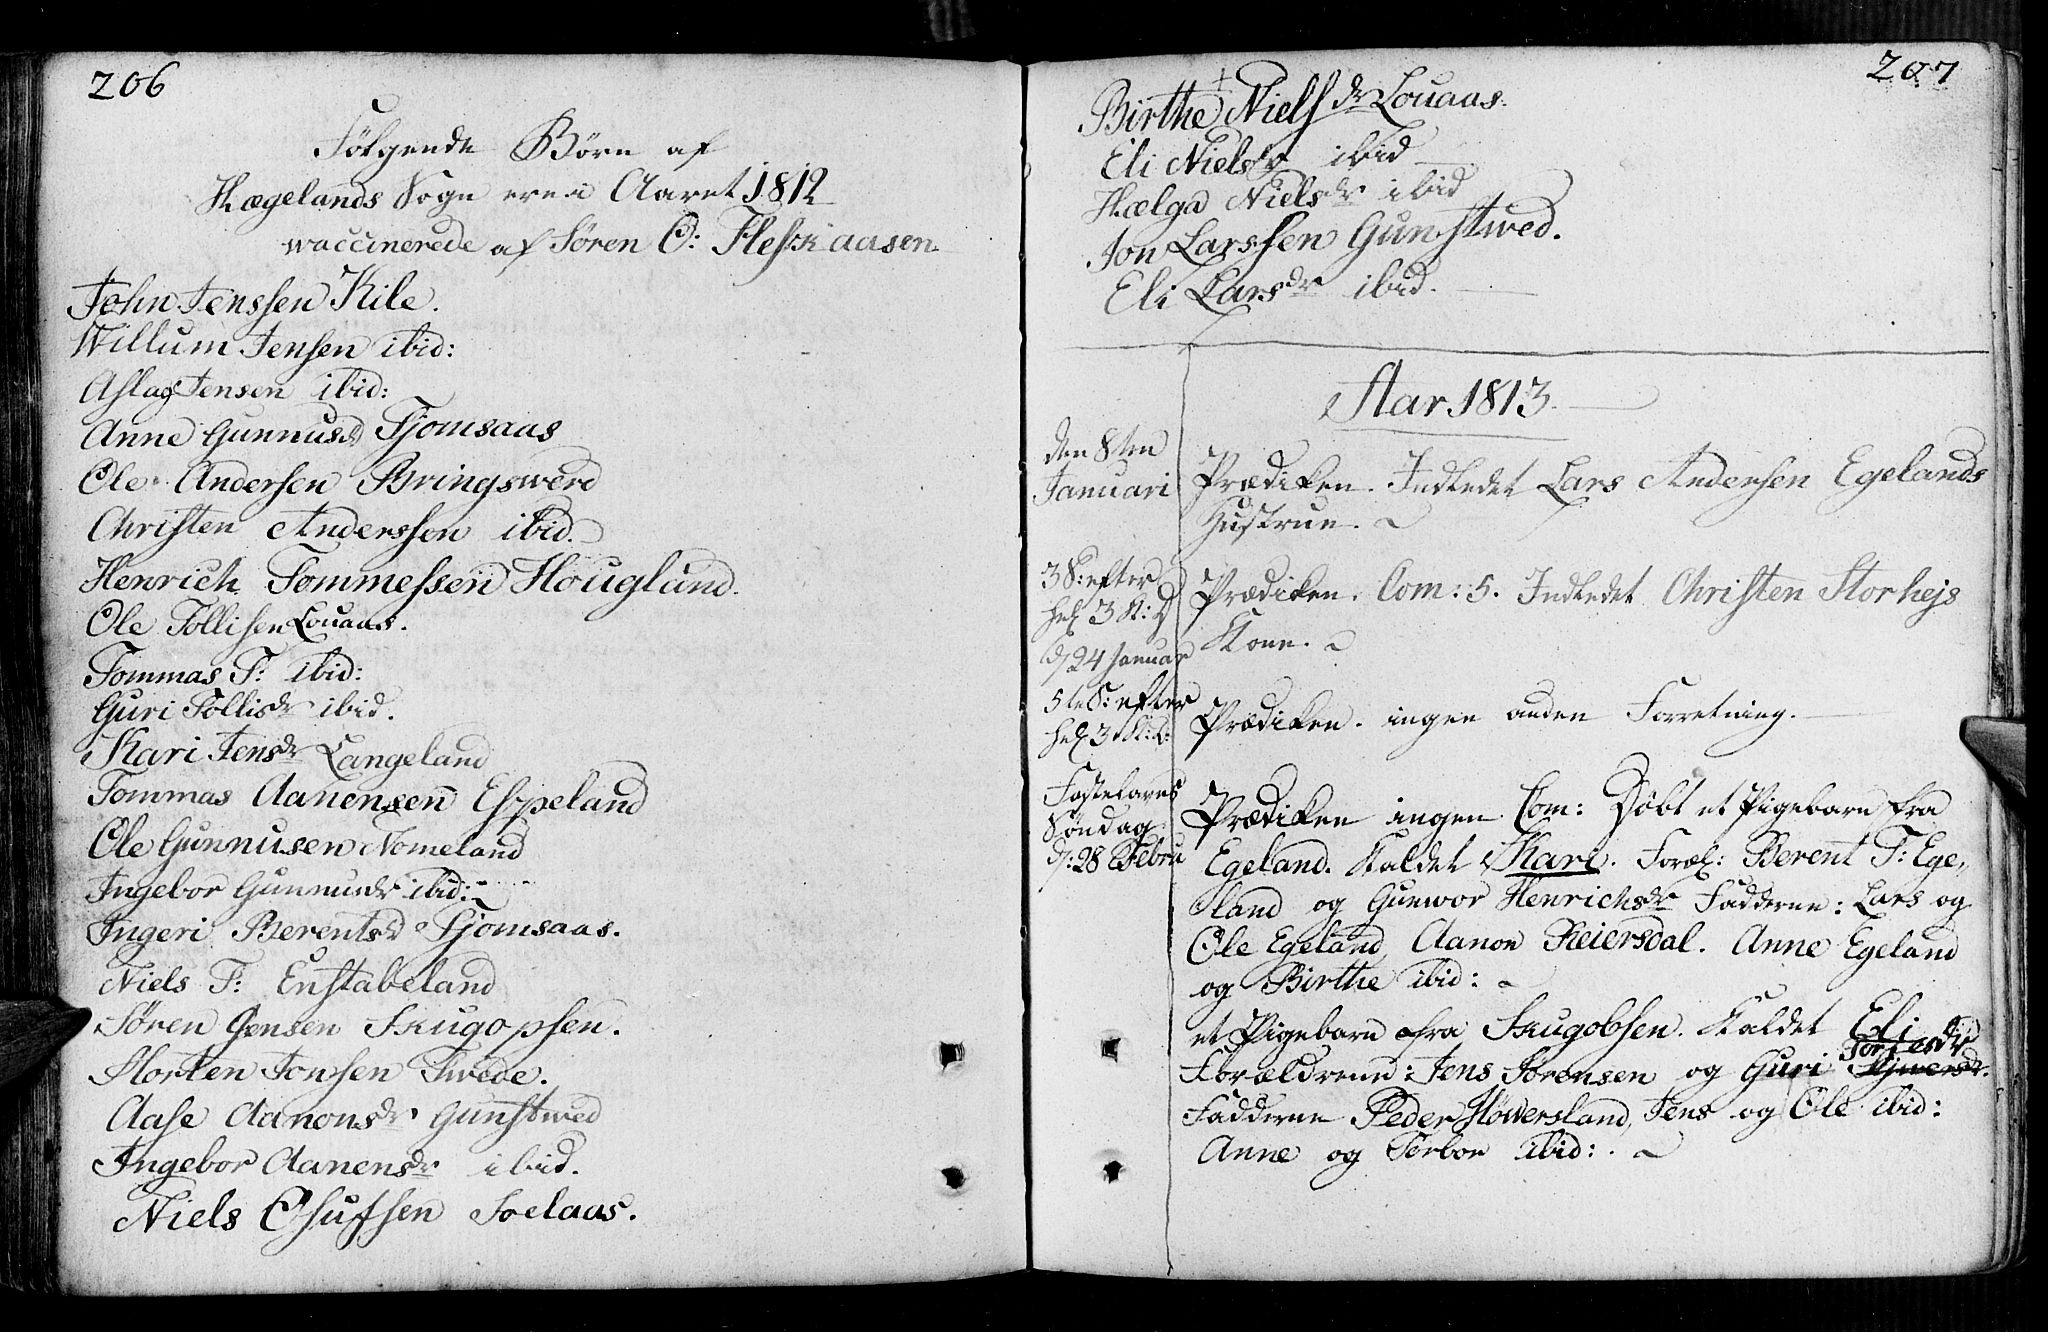 206
Følgende Børn af
Hægelands Sogn ere i Aaret 1812
waccinerede af Søren O: Fleskaasen.
John Jenssen Kile.
Willum Jensen ibid:
Aslag Jensen ibid:
Anne Gunnusd Tjomsaas
Ole Andersen Bringswerd
Christen Anderssen ibid.
Henrich Tommessen Houglund.
Ole Tollisen Louaas.
Tommas T: ibid:
Guri Tollisdr ibid.
Kari Jensdr Langeland
Tommas Aanensen Espeland
Ole Gunnusen Nomeland
Ingebor Gunnusdr ibid:
Ingeri Berentsd Tjomsaas.
Niels T: Enstabeland
Søren Jensen Skugopsen.
Morten Jonsen Twede.
Aase Aanonsdr Gunstwed
Ingebor Aanensdr ibid.
Niels Osufsen Foelaas.
207
Birthe Nielsdr Louaas.
Eli Nielsdr ibid
Hælga Nielsdr ibid
Jon Larssen Gunstwed.
Eli Larsdr ibid.
Aar 1813.
den 8ten
Januari
Prædiken. Indledet Lars Andersen Egelands
Hustrue.
3 S: efter
hel 3 K: D
d 24 Januar
Prædiken. Com: 5. Indledet Christen Storhejs
Kone.
5te S: efter
hel 3 K: D:
Prædiken. ingen anden Forretning.
Fastelavns
Søndag
d: 28 Febru
Prædiken ingen Com: Døbt et Pigebarn fra
Egeland. Kaldet Kari. Foræl: Berent T: Ege-
land og Gunwor Henrichsdr Fadderne: Lars og
Ole Egeland, Aanon Reiersdal. Anne Egeland
og Birthe ibid:
et Pigebarn fra Skugobsen. Kaldet Eli
Forældrene: Jens Sørensen og Guri Torjesdr
Fadderne Peder Høwersland, Jens og Ole ibid:
Anne og Torbor ibid: